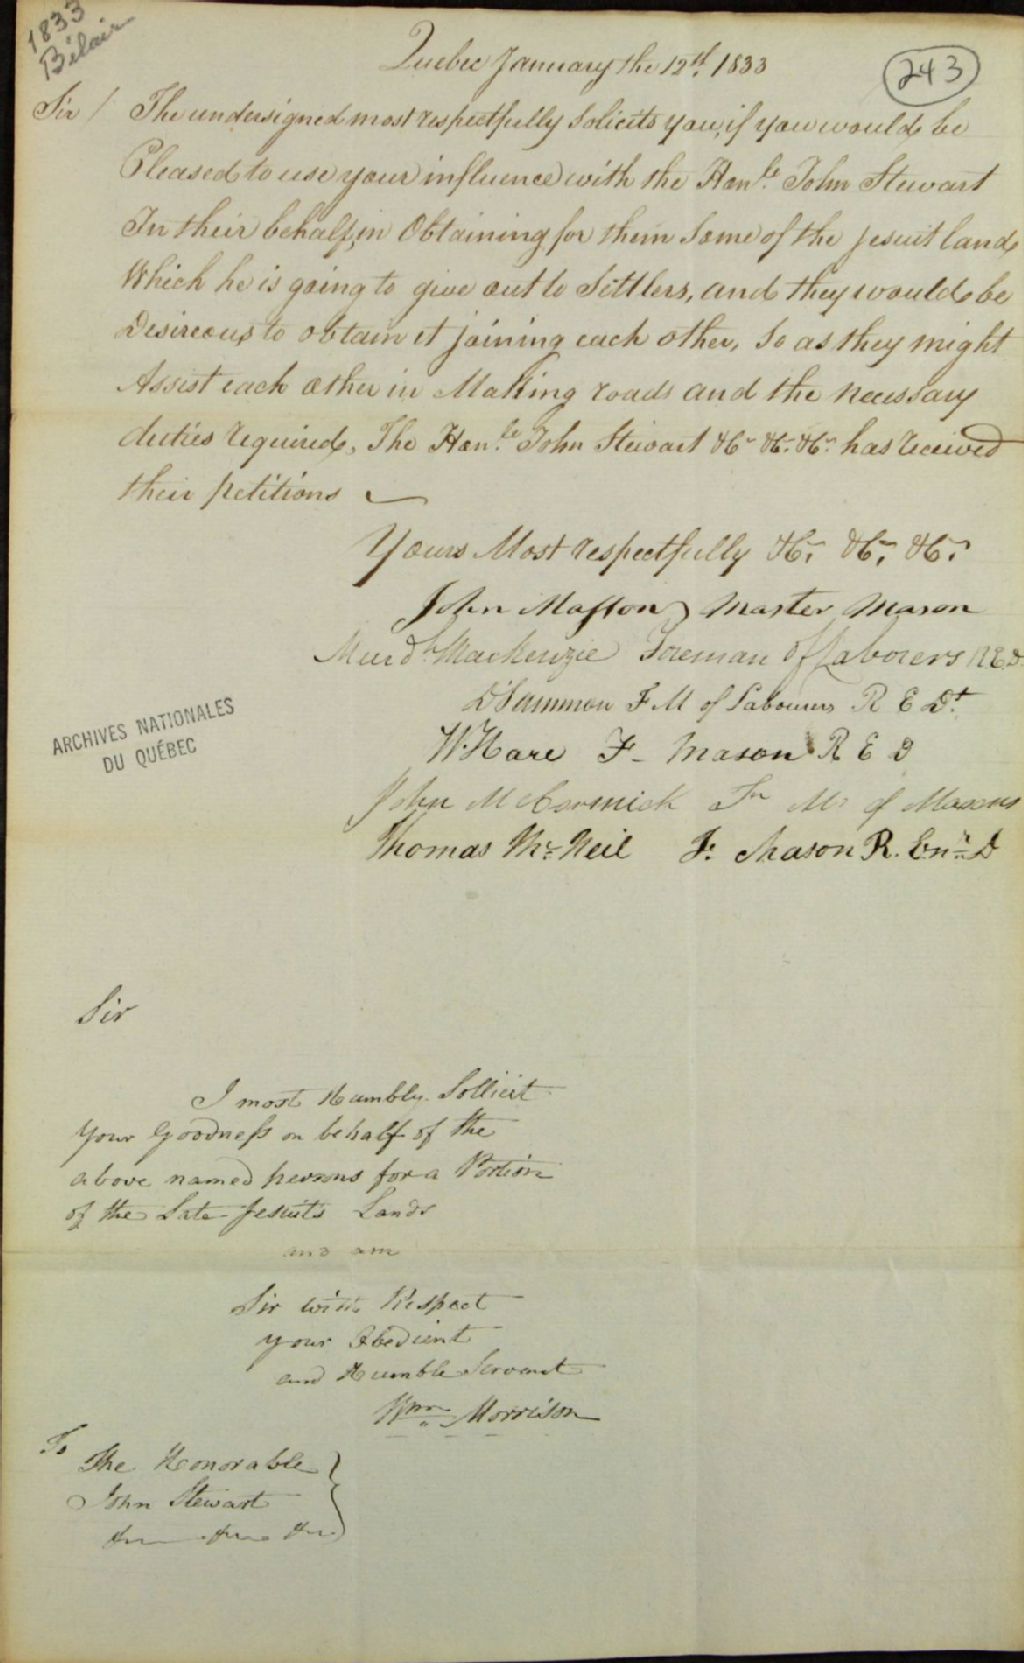 1833
Bélair
243
Quebec January the 12th. 1833
Sir / The undersigned most respectfully Solicits you, if you would be
Pleased to use your influence with the Honble. John Stewart
In their behalf, in Obtaining for them Some of the Jesuit land,
Which he is going to give out to Settlers, and they would be
Desireous to obtain it joining each other, So as they might
Assist each other in Making roads and the necessary
duties required, The Honble. John Stewart &c &c. &c. has received
their petitions
Yours Most respectfully &c. &c. &c.
John Masson Master Mason
Murdh. Mackenzie Foreman of Laborers R E D.
F M of Labourers R E Dt
W. Hare F - Mason R E D
John McCormick Fn Mr of Masons
Thomas Mc Neil F. Mason R. Enn. D
ARCHIVES NATIONALES
DU QUÉBEC
Sir
I most Humbly Sollicit
Your Goodness on behalf of the
above named persons for a Portion
of the Late Jesuits Lands
and am
Sir with Respect
your Obedient
and Humble Servant
Wm Morrison
To
The Honorable
John Stewart